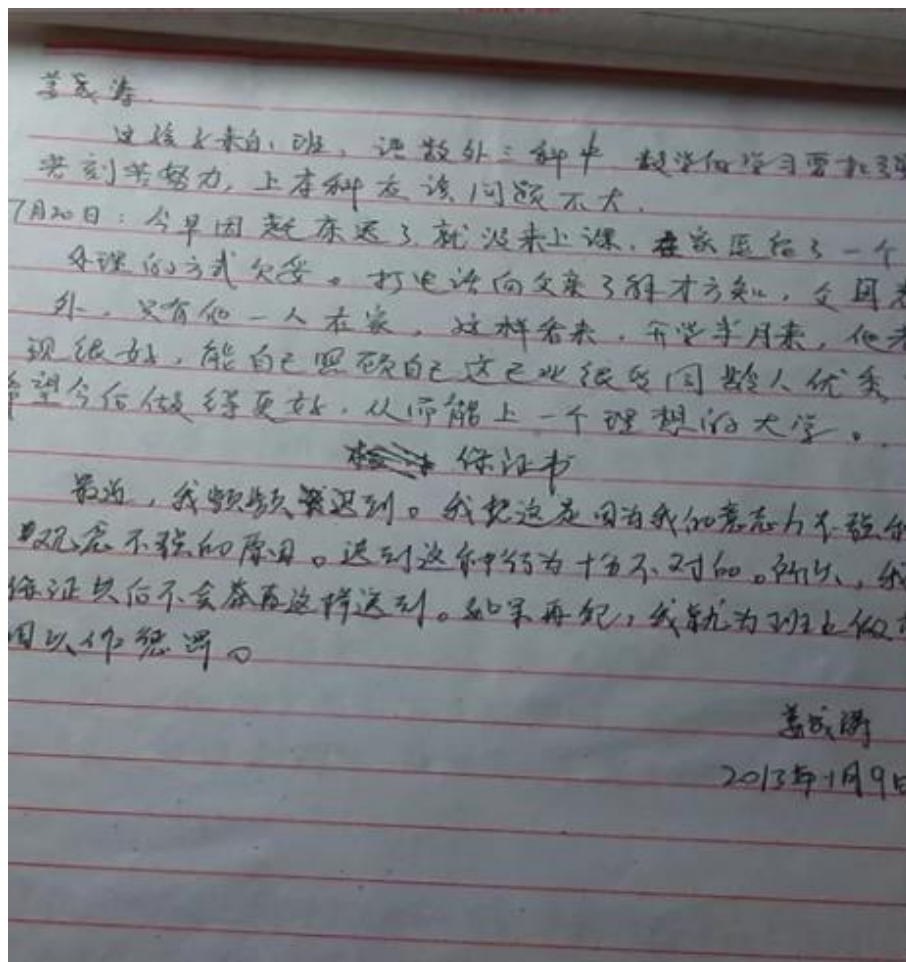 姜成涛
这孩子来自1班,语数外三种中 数学的学习要扎
若刻苦努力,上本科应该问题不大.
7月20日:今早因起床迟了就没来上课.在家 了一个
处理的方式欠妥。打电话向父亲了解才方知,父母
外,只有他一人在家,这样看来,开学半月来,他
现很好,能自己照顾自己这已比很多同龄人优秀
希望今后做得更好,从而能上一个理想的大学。
保证书
最近,我频频迟到。我想这是因为我的意志力不强
观念不强的原因。迟到这种行为十分不对的。所以,我
保证以后不会再这样迟到。如果再犯,我就为班上做
以作惩罚。
姜成涛
2013年1月9日